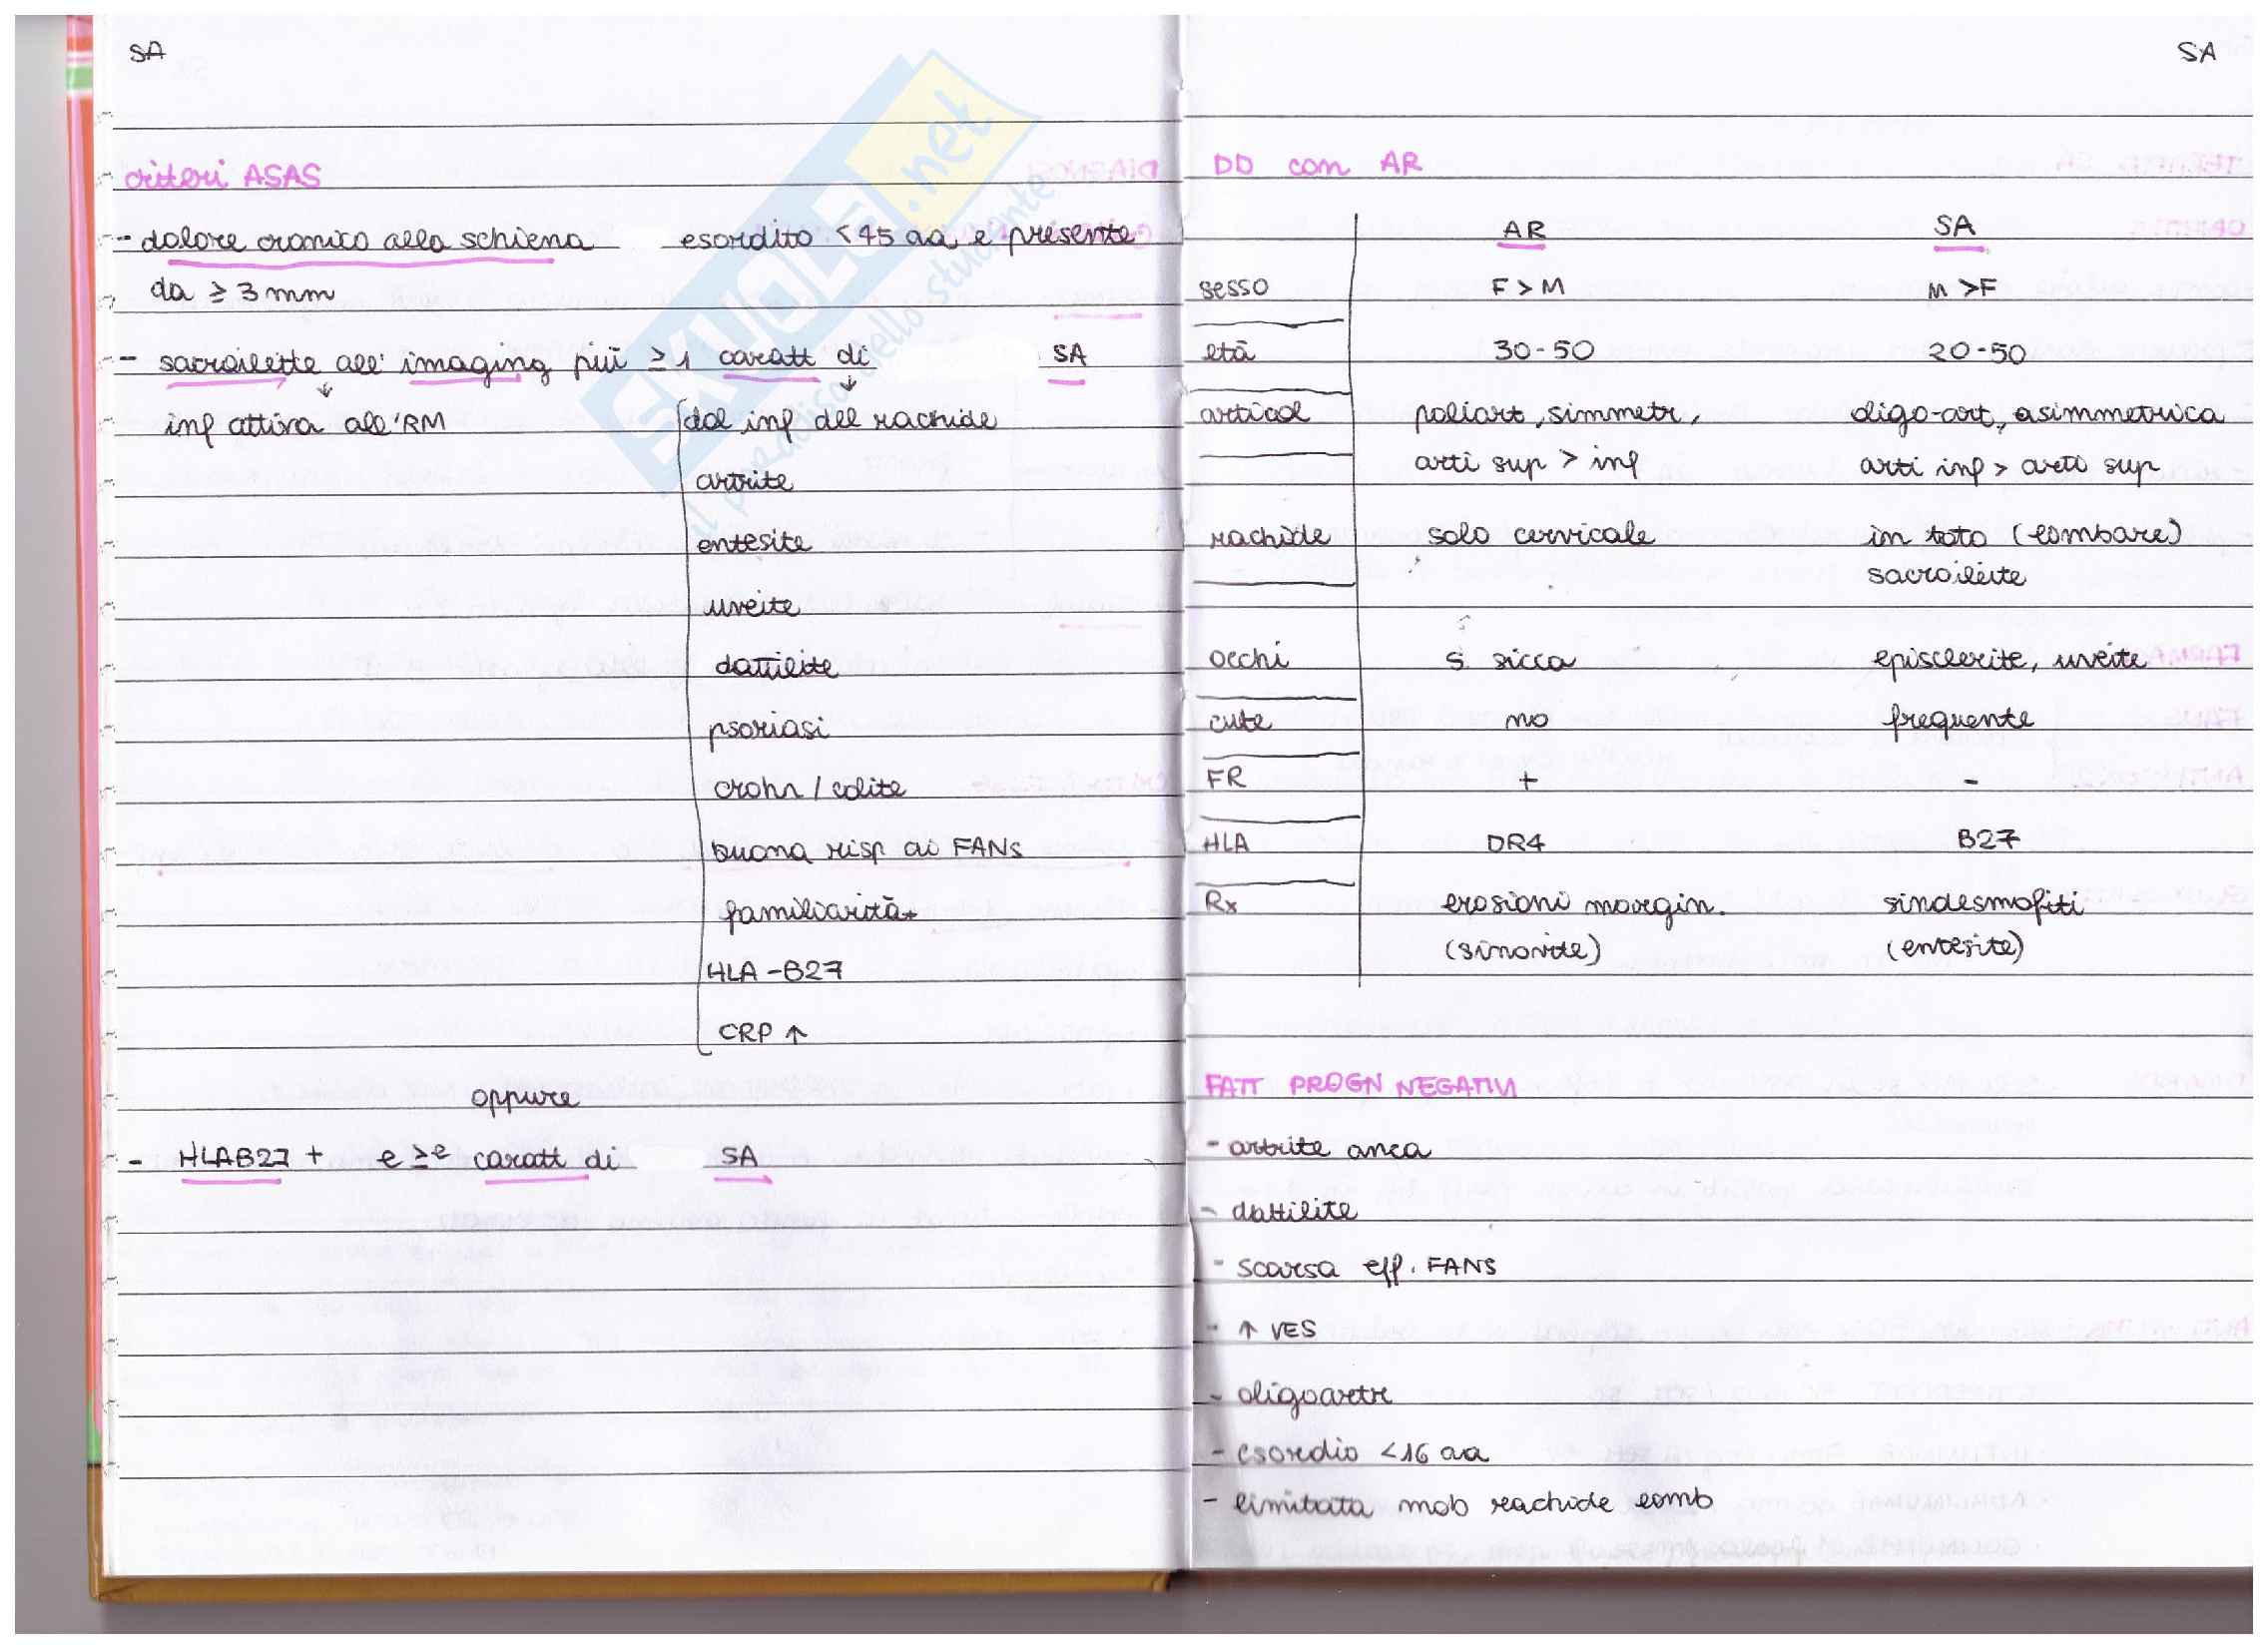 SA
criteri ASAS
- dolore cronico alla schiena esordito <45 aa e presente
da ≥ 3 mm
- sacroileite all' imaging più ≥1 caratt di SA
inf attiva all'RM
dol inf dell rachide
artrite
entesite
uveite
dattilite
psoriasi
crohn / colite
buona risp ai FANs
familiarità+
HLA-B27
CRP ↑
oppure
- HLAB27 + e ≥ caratt di SA
SKUOLA.net
il paradiso dello studente
SA
DD con AR
AR SA
sesso F>M M>F
età 30-50 20-50
articol poliart, simmetr, oligo-art, asimmetrica
arti sup > inf arti inf > arto sup
rachide solo cervicale in toto (lombare)
sacroileite
occhi s. sicca episclerite, uveite
cute no frequente
FR + -
HLA DR4 B27
Rx erosioni margin. sindesmofiti
(sinovite) (entesite)
FATT PROGN NEGATIVI
- artrite anca
- dattilite
- scarsa eff. FANS
- ↑ VES
- oligoartr
- esordio <16 aa
- limitata mob rachide lomb